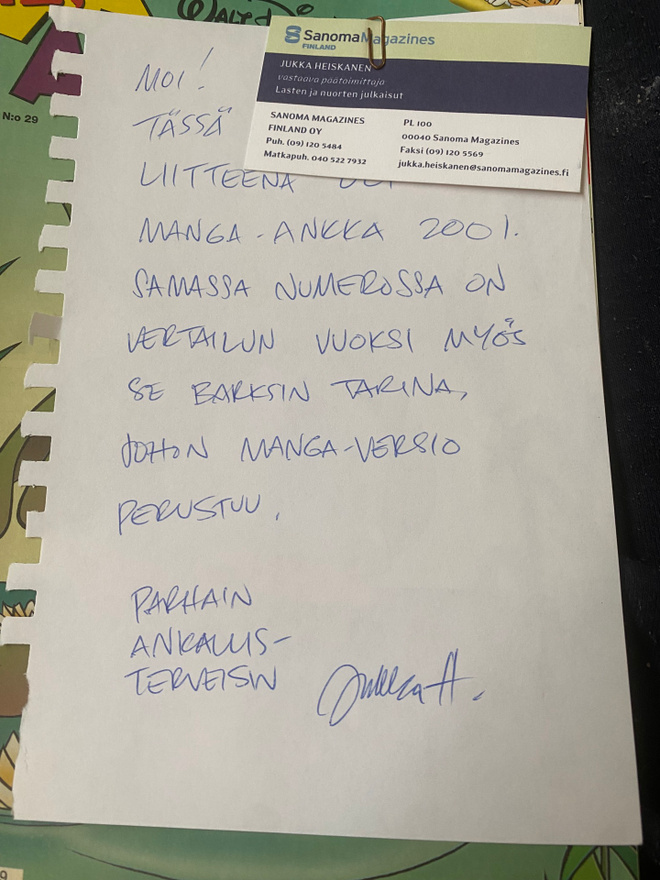 WALT
N:o 29
SanomaMagazines
FINLAND
JUKKA HEISKANEN
vastaava päätoimittaja
Lasten ja nuorten julkaisut
SANOMA MAGAZINES
FINLAND OY
Puh. (09) 120 5484
Matkapuh. 040 522 7932
PL 100
00040 Sanoma Magazines
Faksi (09) 120 5569
jukka.heiskanen@sanomamagazines.fi
MOI!
TÄSSÄ
LIITTEENÄ
MANGA-ANKKA 2001.
SAMASSA NUMEROSSA ON
VERTAILUN VUOKSI MYÖS
SE BARKSIN TARINA,
JOHON MANGA-VERSIO
PERUSTUU.
PARHAIN
ANKALLIS-
TERVEISIN
Jukka H.